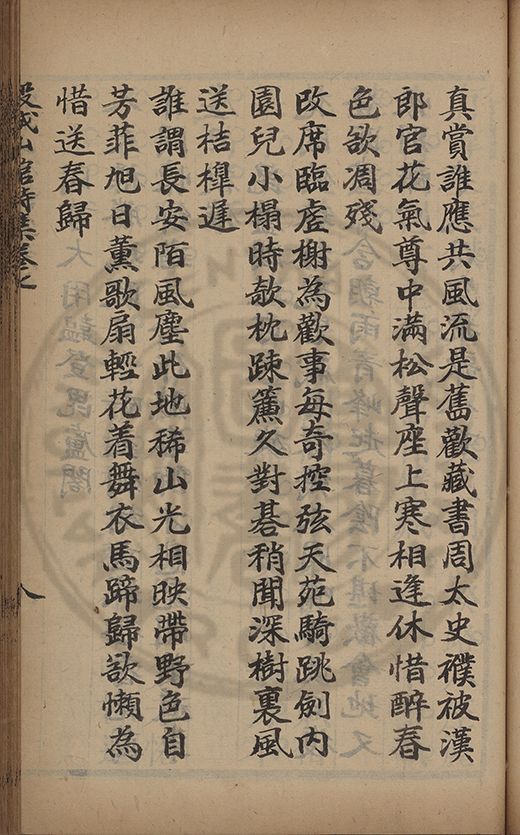 真賞誰應共風流是舊歡藏書周太史襆被漢
郎官花氣尊中满松聲座上寒相逢休惜醉春
色欲凋殘
改席臨虗榭為歡事每奇控弦天苑騎跳劍内
園兒小榻時欹枕踈簾久對棊稍聞深樹裏風
送桔橰遲
誰謂長安陌風塵此地稀山光相映帶野色自
芳菲旭日薰歌扇輕花着舞衣馬蹄歸欲懶為
惜送春歸
穀城山館詩集卷之
八